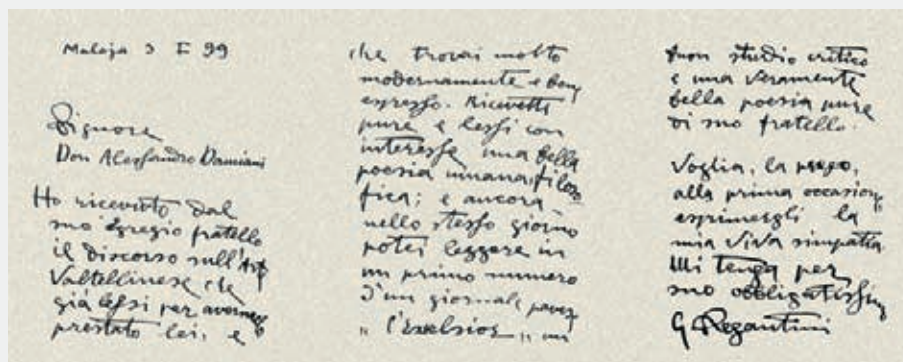 Maloja 3 I 99
Signore
Don Alessandro Damiani
Ho ricevuto dal
suo egregio fratello
il discorso sull'Arte
Valtellinese che
già lessi per avermelo
prestato lei, e
che trovai molto
modernamente e bene
espresso. Ricevetti
pure e lessi con
interesse una bella
poesia umana, filoso
fica; e ancora
nello stesso giorno
potei leggere in
un primo numero
d'un giornale pavese
"l'Exelsior" un
buon studio critico
e una veramente
bella poesia pure
di suo fratello.
Voglia, la prego,
alla prima occasione
esprimergli la
mia viva simpatia
Mi tenga per
suo obbligatissimo
G Segantini